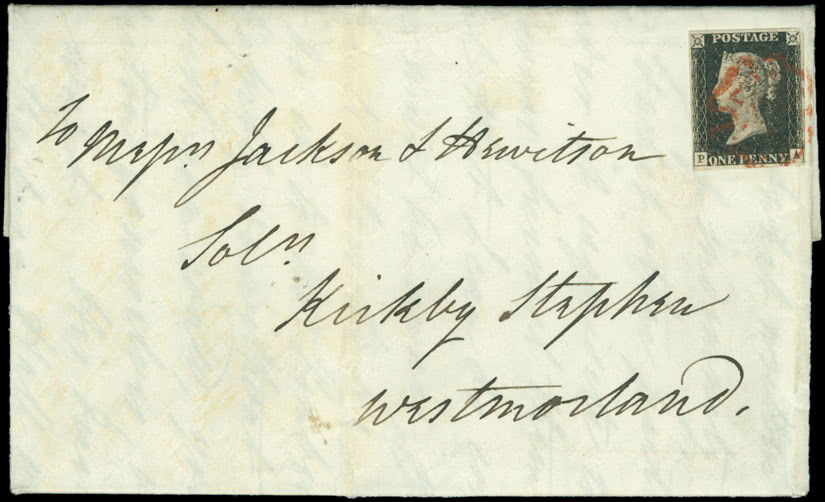 POSTAGE
P ONE PENNY A
To Messrs Jackson & Hewitson
Solrs
Kirkby Stephen
Westmorland.